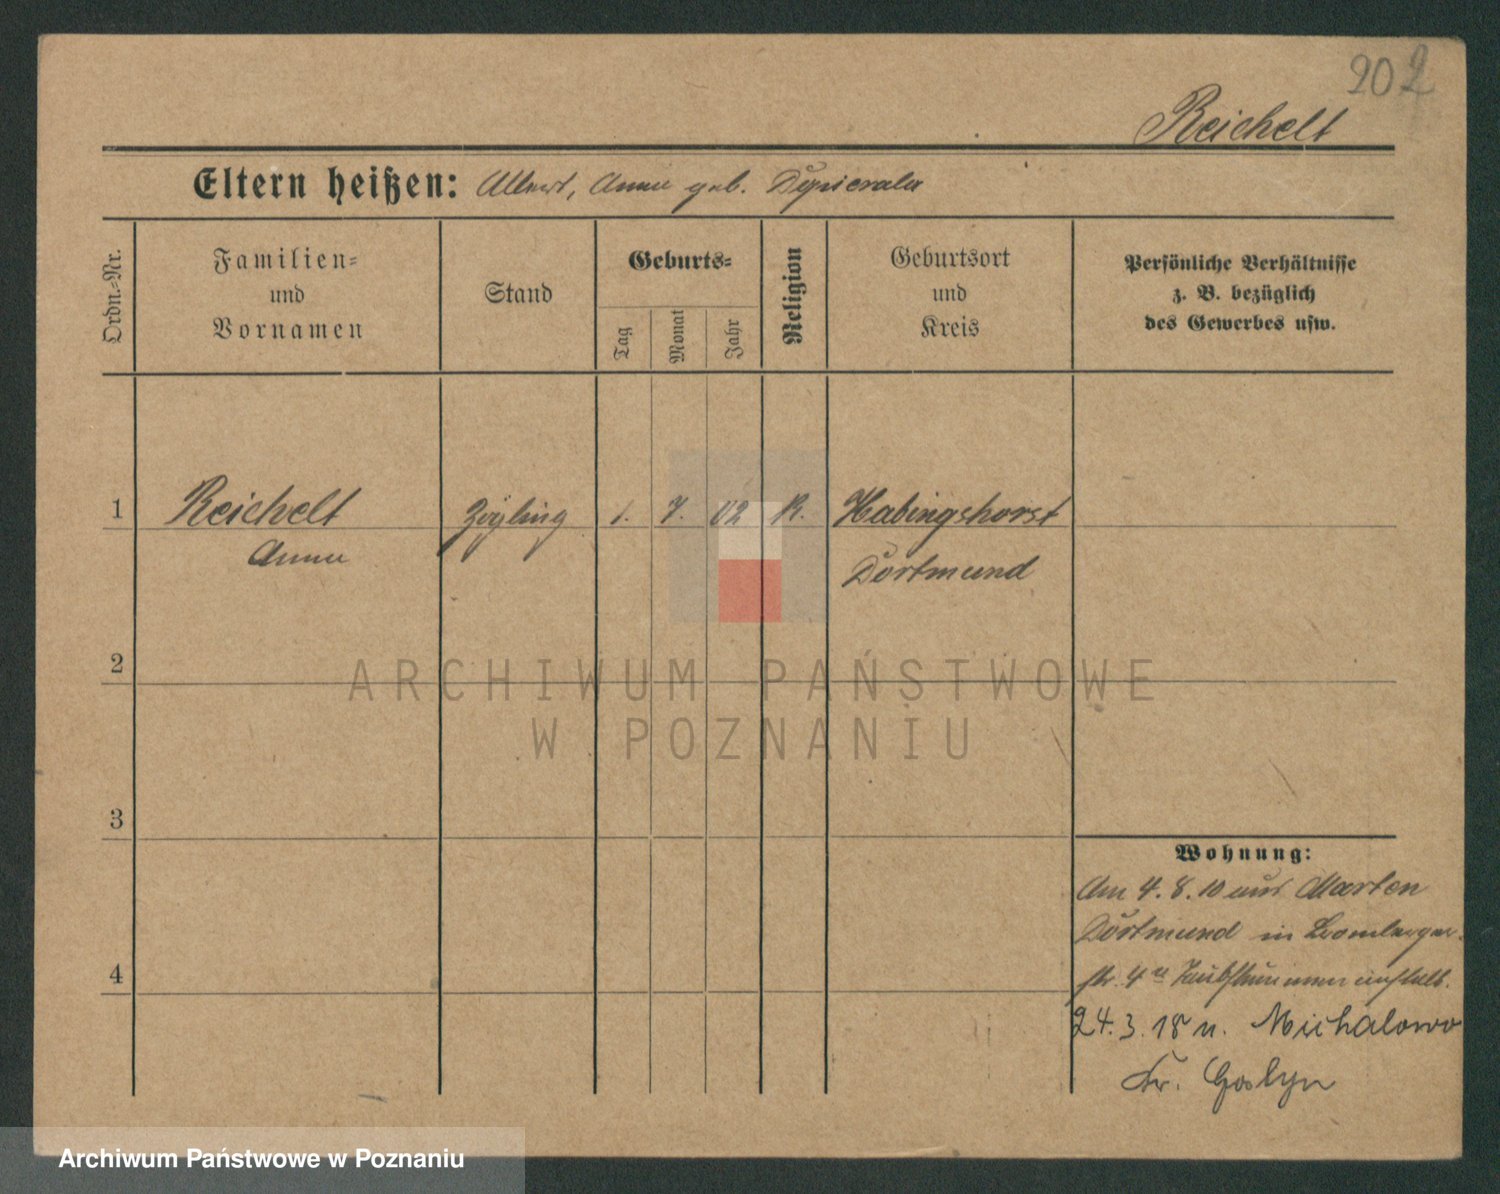 202
Reichelt
Eltern heißen: Albert, Anna geb. Dypicrala
Ordn.-Nr.
Familien- und Vornamen
Stand
Geburts-
Tag
Monat
Jahr
Religion
Geburtsort und Kreis
Persönliche Verhältnisse
z. B. bezüglich
des Gewerbes usw.
1 Reichelt Zögling 1. 7. 02 K. Habingshorst
Anna Dortmund
2
ARCHIWUM PAŃSTWOWE
W POZNANIU
3
Wohnung:
Am 4.8.10 aus Marten
Dortmund in Bromberger-
4 str. 4a Taubstummenanstalt.
24.3.18 n. Michalowo
Kr. Goslyn
Archiwum Państwowe w Poznaniu